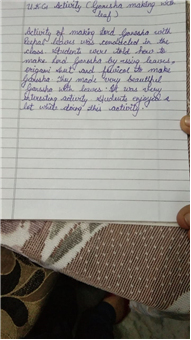 U.K.G Activity (Ganesha making with
leaf)
Activity of making Lord Ganesha with
Peepal leaves was conducted in the
class. Students were told how to
make Lord Ganesha by using leaves,
origami sheet and fevicol to make
Ganesha they made very beautiful
Ganesha with leaves. It was very
interesting activity students enjoyed a
lot while doing this activity